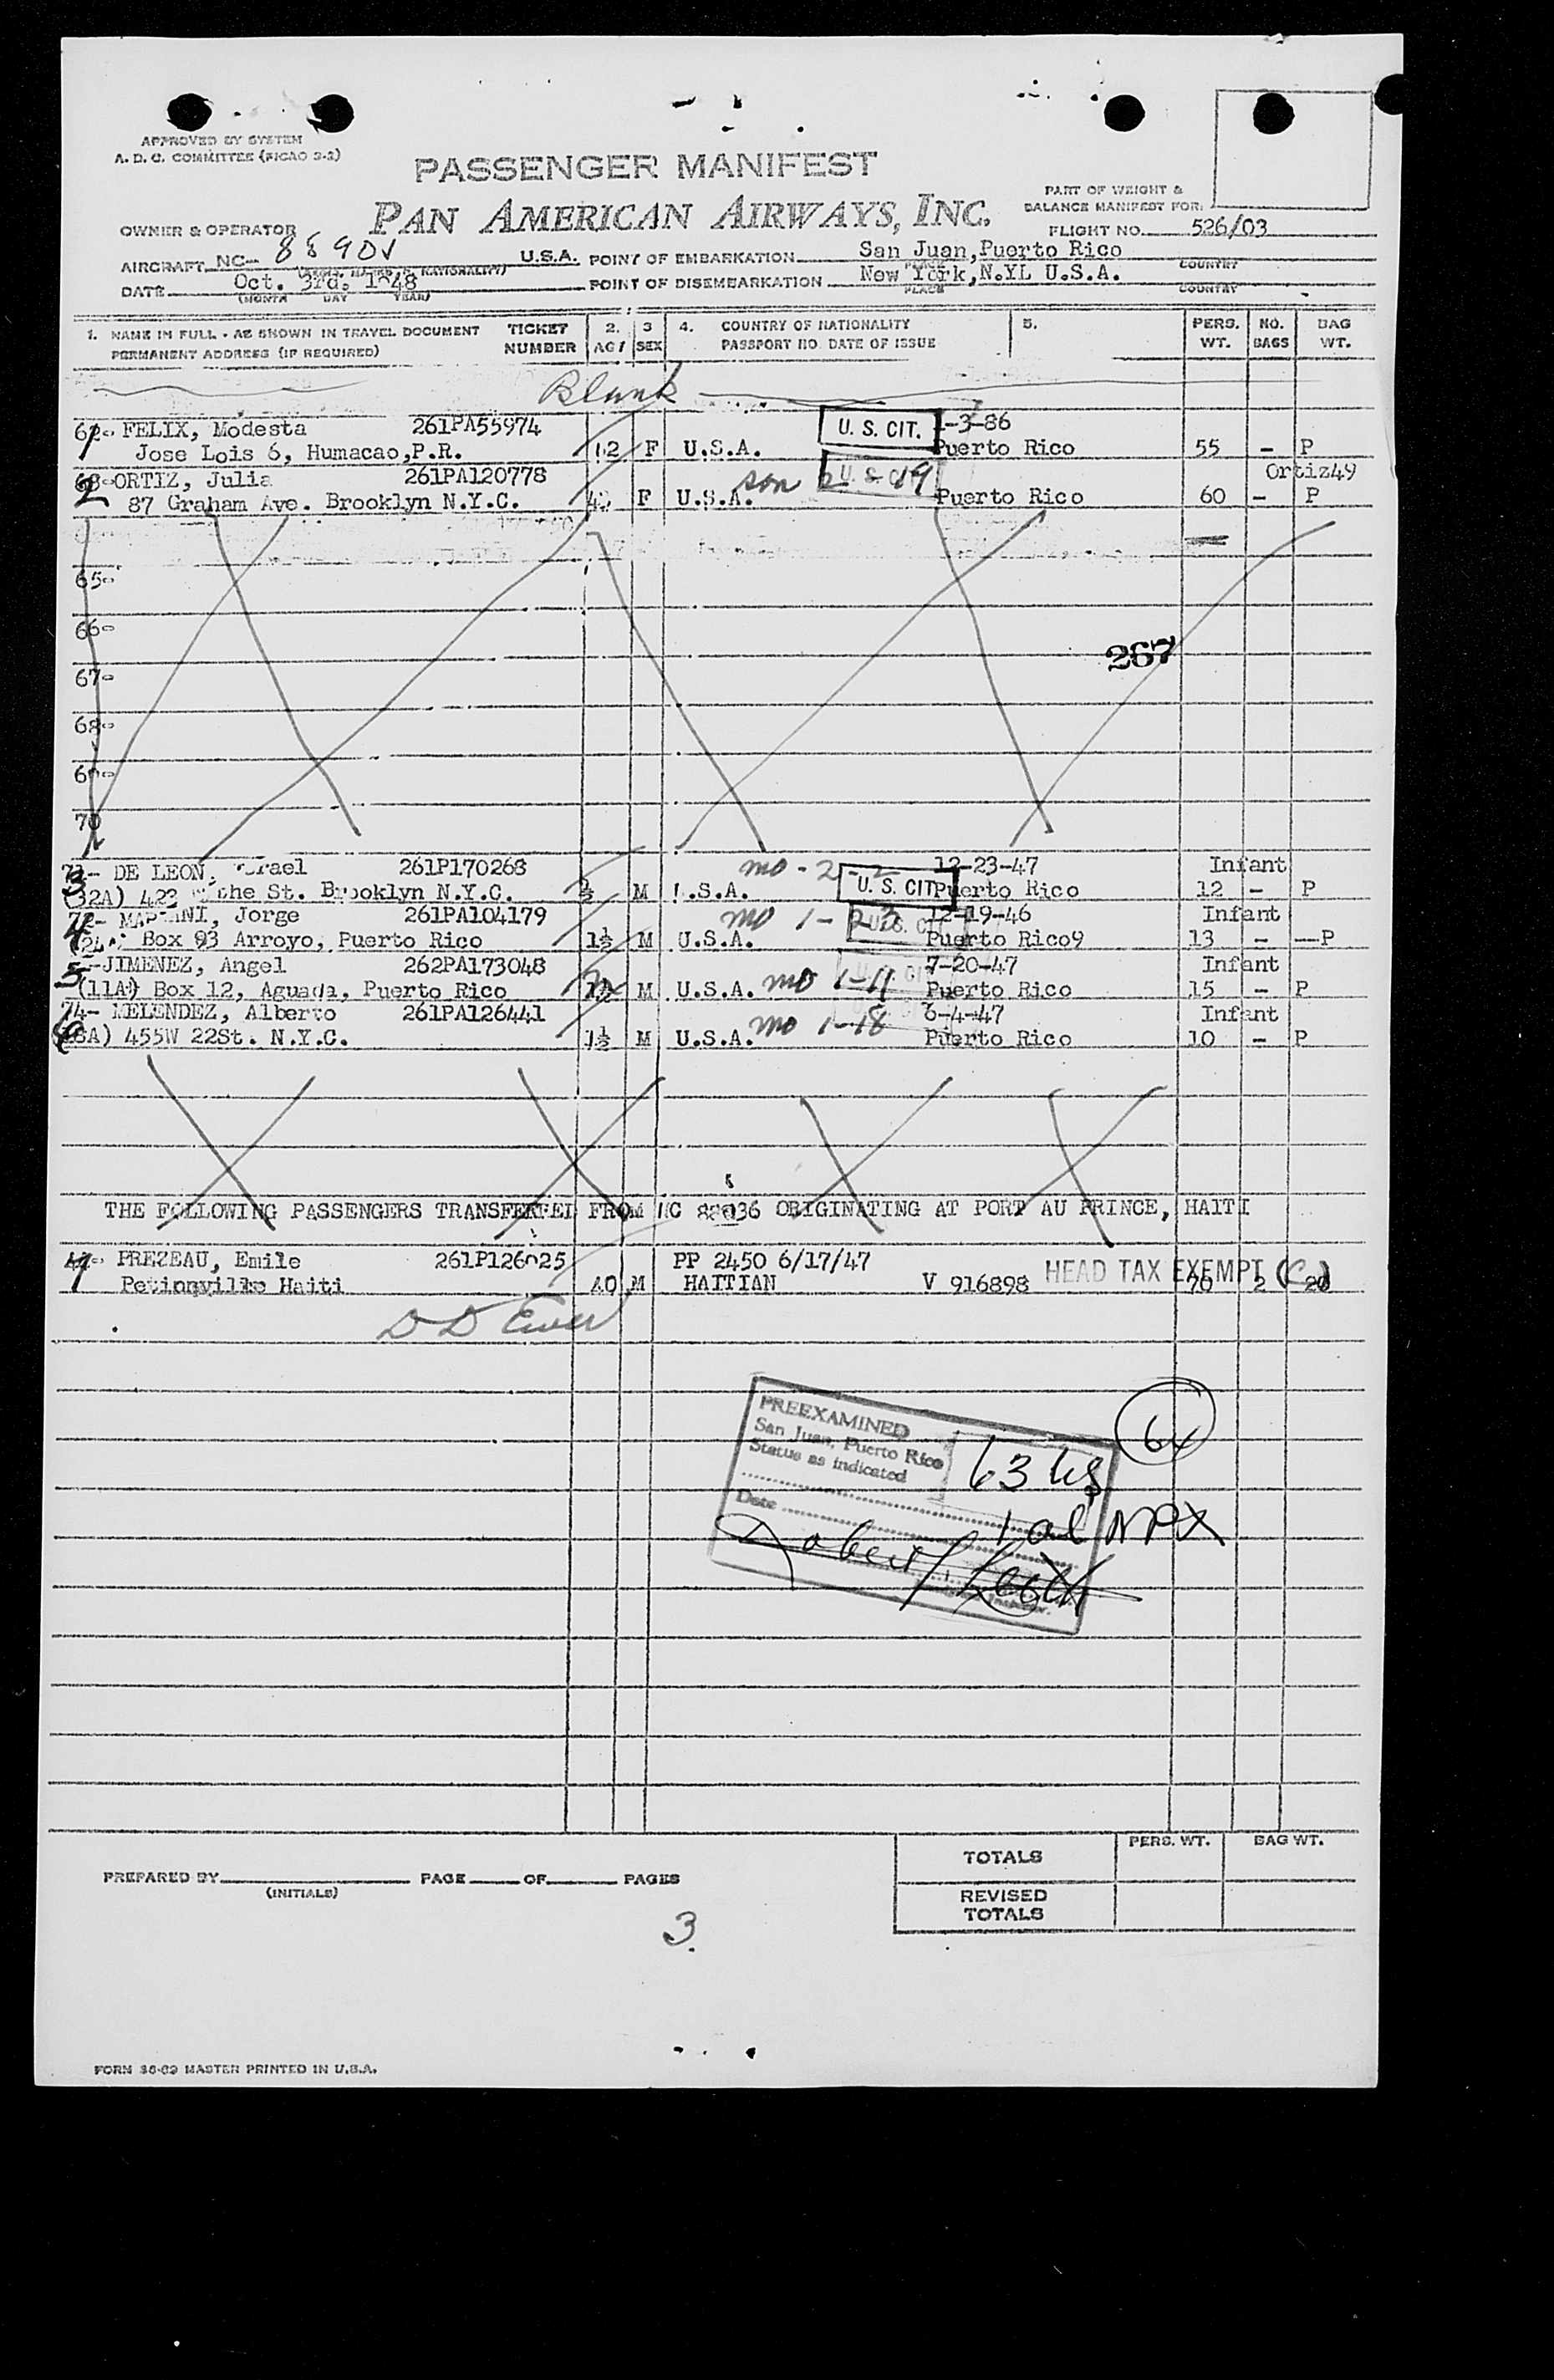 APPROVED BY SYSTEM
A. D. C. COMMITTEE (PICAO 3-2)
PASSENGER MANIFEST
PAN AMERICAN AIRWAYS, INC.
PART OF WEIGHT &
BALANCE MANIFEST FOR:
OWNER & OPERATOR
FLIGHT NO. 526/03
AIRCRAFT NC- U.S.A. POINT OF EMBARKATION San Juan, Puerto Rico
PLACE COUNTRY
DATE Oct. 3rd. POINT OF DISEMBARKATION New York, N.YL U.S.A.
(MONTH DAY YEAR) PLACE COUNTRY
1. NAME IN FULL - AS SHOWN IN TRAVEL DOCUMENT TICKET 2. 3 4. COUNTRY OF NATIONALITY 5. PERS. NO. BAG
PERMANENT ADDRESS (IF REQUIRED) NUMBER AGE SEX PASSPORT NO. DATE OF ISSUE WT. BAGS WT.
Blank
1 FELIX, Modesta 261PA55974 U. S. CIT. -3-86
Jose Lois 6, Humacao,P.R. F U.S.A. Puerto Rico 55 - P
2 ORTIZ, Julia 261PA120778 son 2-19 Ortiz49
87 Graham Ave. Brooklyn N.Y.C. F U.S.A. Puerto Rico 60 - P
65-
66-
267
67-
68-
70
3 DE LEON, 261P170268 mo - 2 12-23-47 Infant
(32A) 423 St. Brooklyn N.Y.C. M U.S.A. U. S. CIT Puerto Rico 12 - P
4 Jorge 261PA104179 mo 1-23 12-19-46 Infant
Box 93 Arroyo, Puerto Rico 1½ M U.S.A. Puerto Rico9 13 - --P
5 JIMENEZ, Angel 262PA173048 7-20-47 Infant
(11A) Box 12, Aguada, Puerto Rico M U.S.A. mo 1-11 Puerto Rico 15 - P
74- MELENDEZ, Alberto 261PA126441 6-4-47 Infant
455W 22St. N.Y.C. 1½ M U.S.A. mo 1-18 Puerto Rico 10 - P
THE FOLLOWING PASSENGERS TRANSFERRED FROM NC ORIGINATING AT PORT AU PRINCE, HAITI
7 PREZEAU, Emile PP 2450 6/17/47
Haiti 40 M HAITIAN V 916898 HEAD TAX EXEMPT 70 2 20
PREEXAMINED
San Juan, Puerto Rico
Status as indicated
63
Date
TOTALS PERS. WT. BAG WT.
PREPARED BY PAGE OF PAGES
(INITIALS)
REVISED
TOTALS
3
FORM 36-69 MASTER PRINTED IN U.S.A.